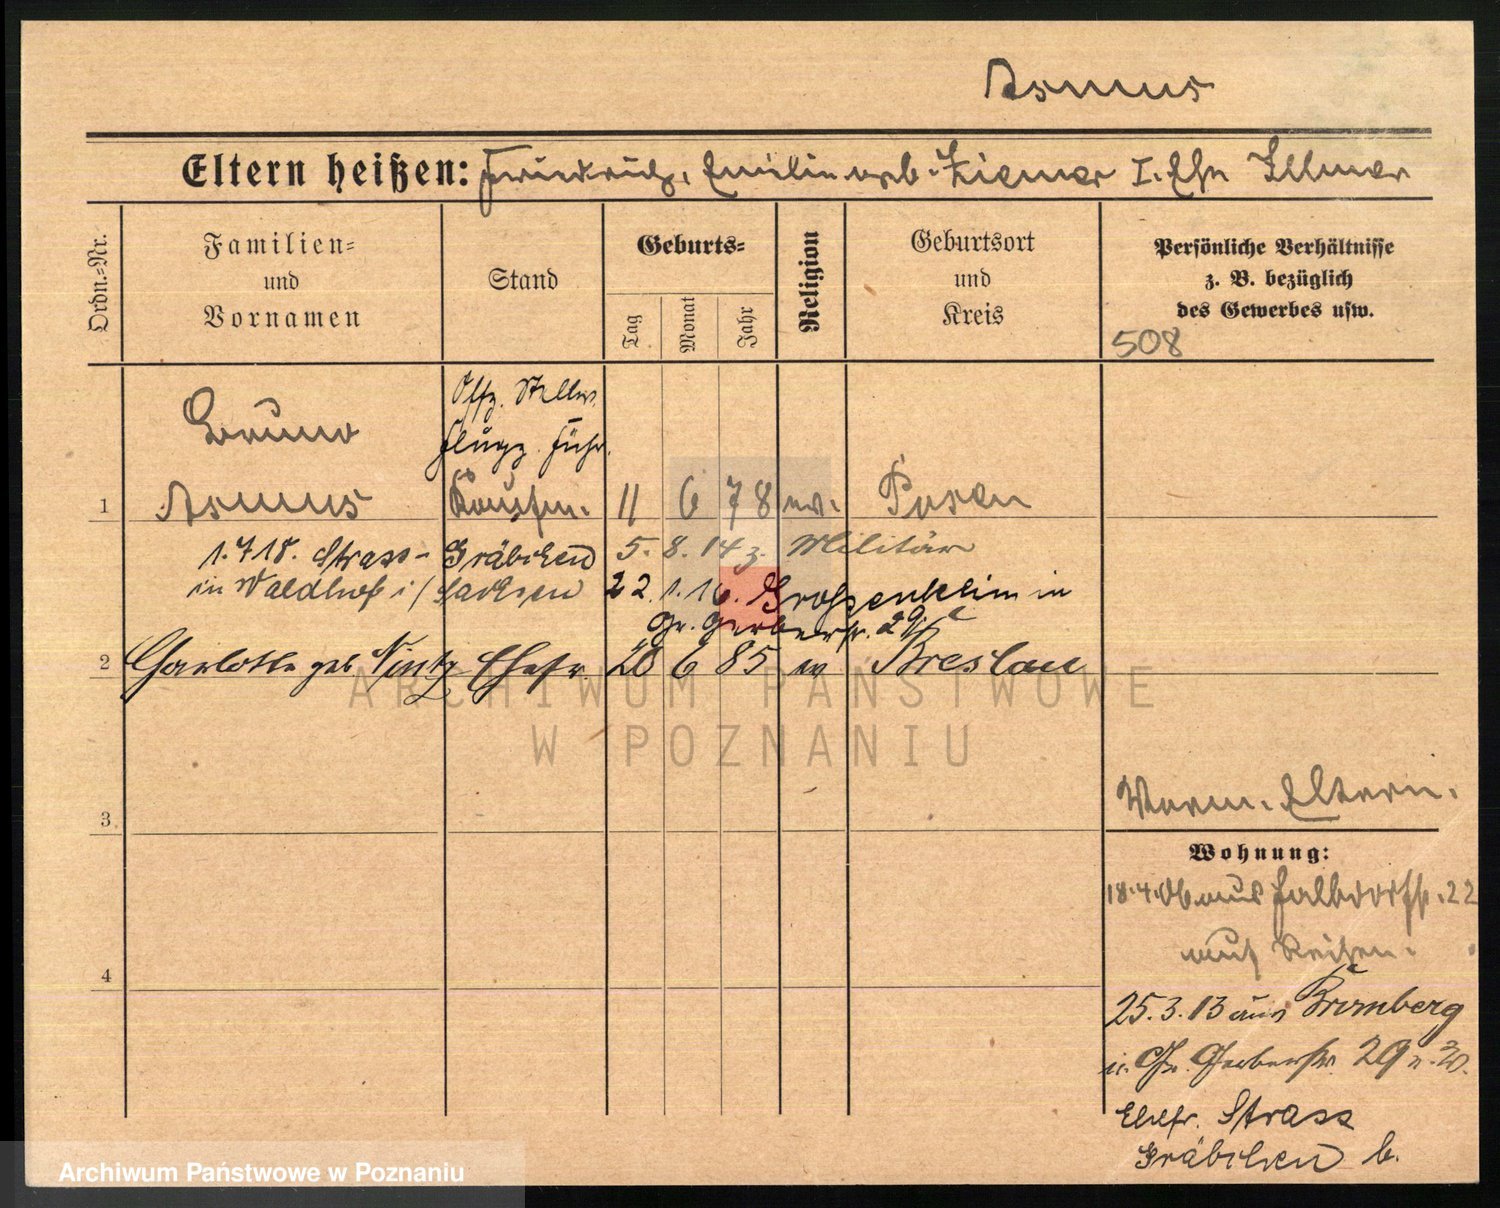 Asmus
Eltern heißen: Friedrich, Emilie geb. Ziemer I. Ehe Illmer
Ordn.-Nr.
Familien-
und
Vornamen
Stand
Geburts-
Tag
Monat
Jahr
Religion
Geburtsort
und
Kreis
Persönliche Verhältnisse
z. B. bezüglich
des Gewerbes usw.
508
Bruno
Offz. Stellv.
Flugz. Führ.
1 Asmus Kaufm. 11 6 78 ev. Posen
1.7 18. Strass- Gräbchen 5. 8. 14 z. Militär
in Waldhof i/ Sachsen 22. 1. 16. Grossenheim in
Gr. Gerberstr. 29
2 Charlotte geb. 20 6 85 ev Breslau
3
4
Eltern.
Wohnung:
18.4.06 aus 22
auf Reisen.
25.3.13 aus Bromberg
n. Gr. Gerberstr. 29 n.
Ehefr. Strass
Gräbchen b.
ARCHIWUM PAŃSTWOWE
W POZNANIU
Archiwum Państwowe w Poznaniu